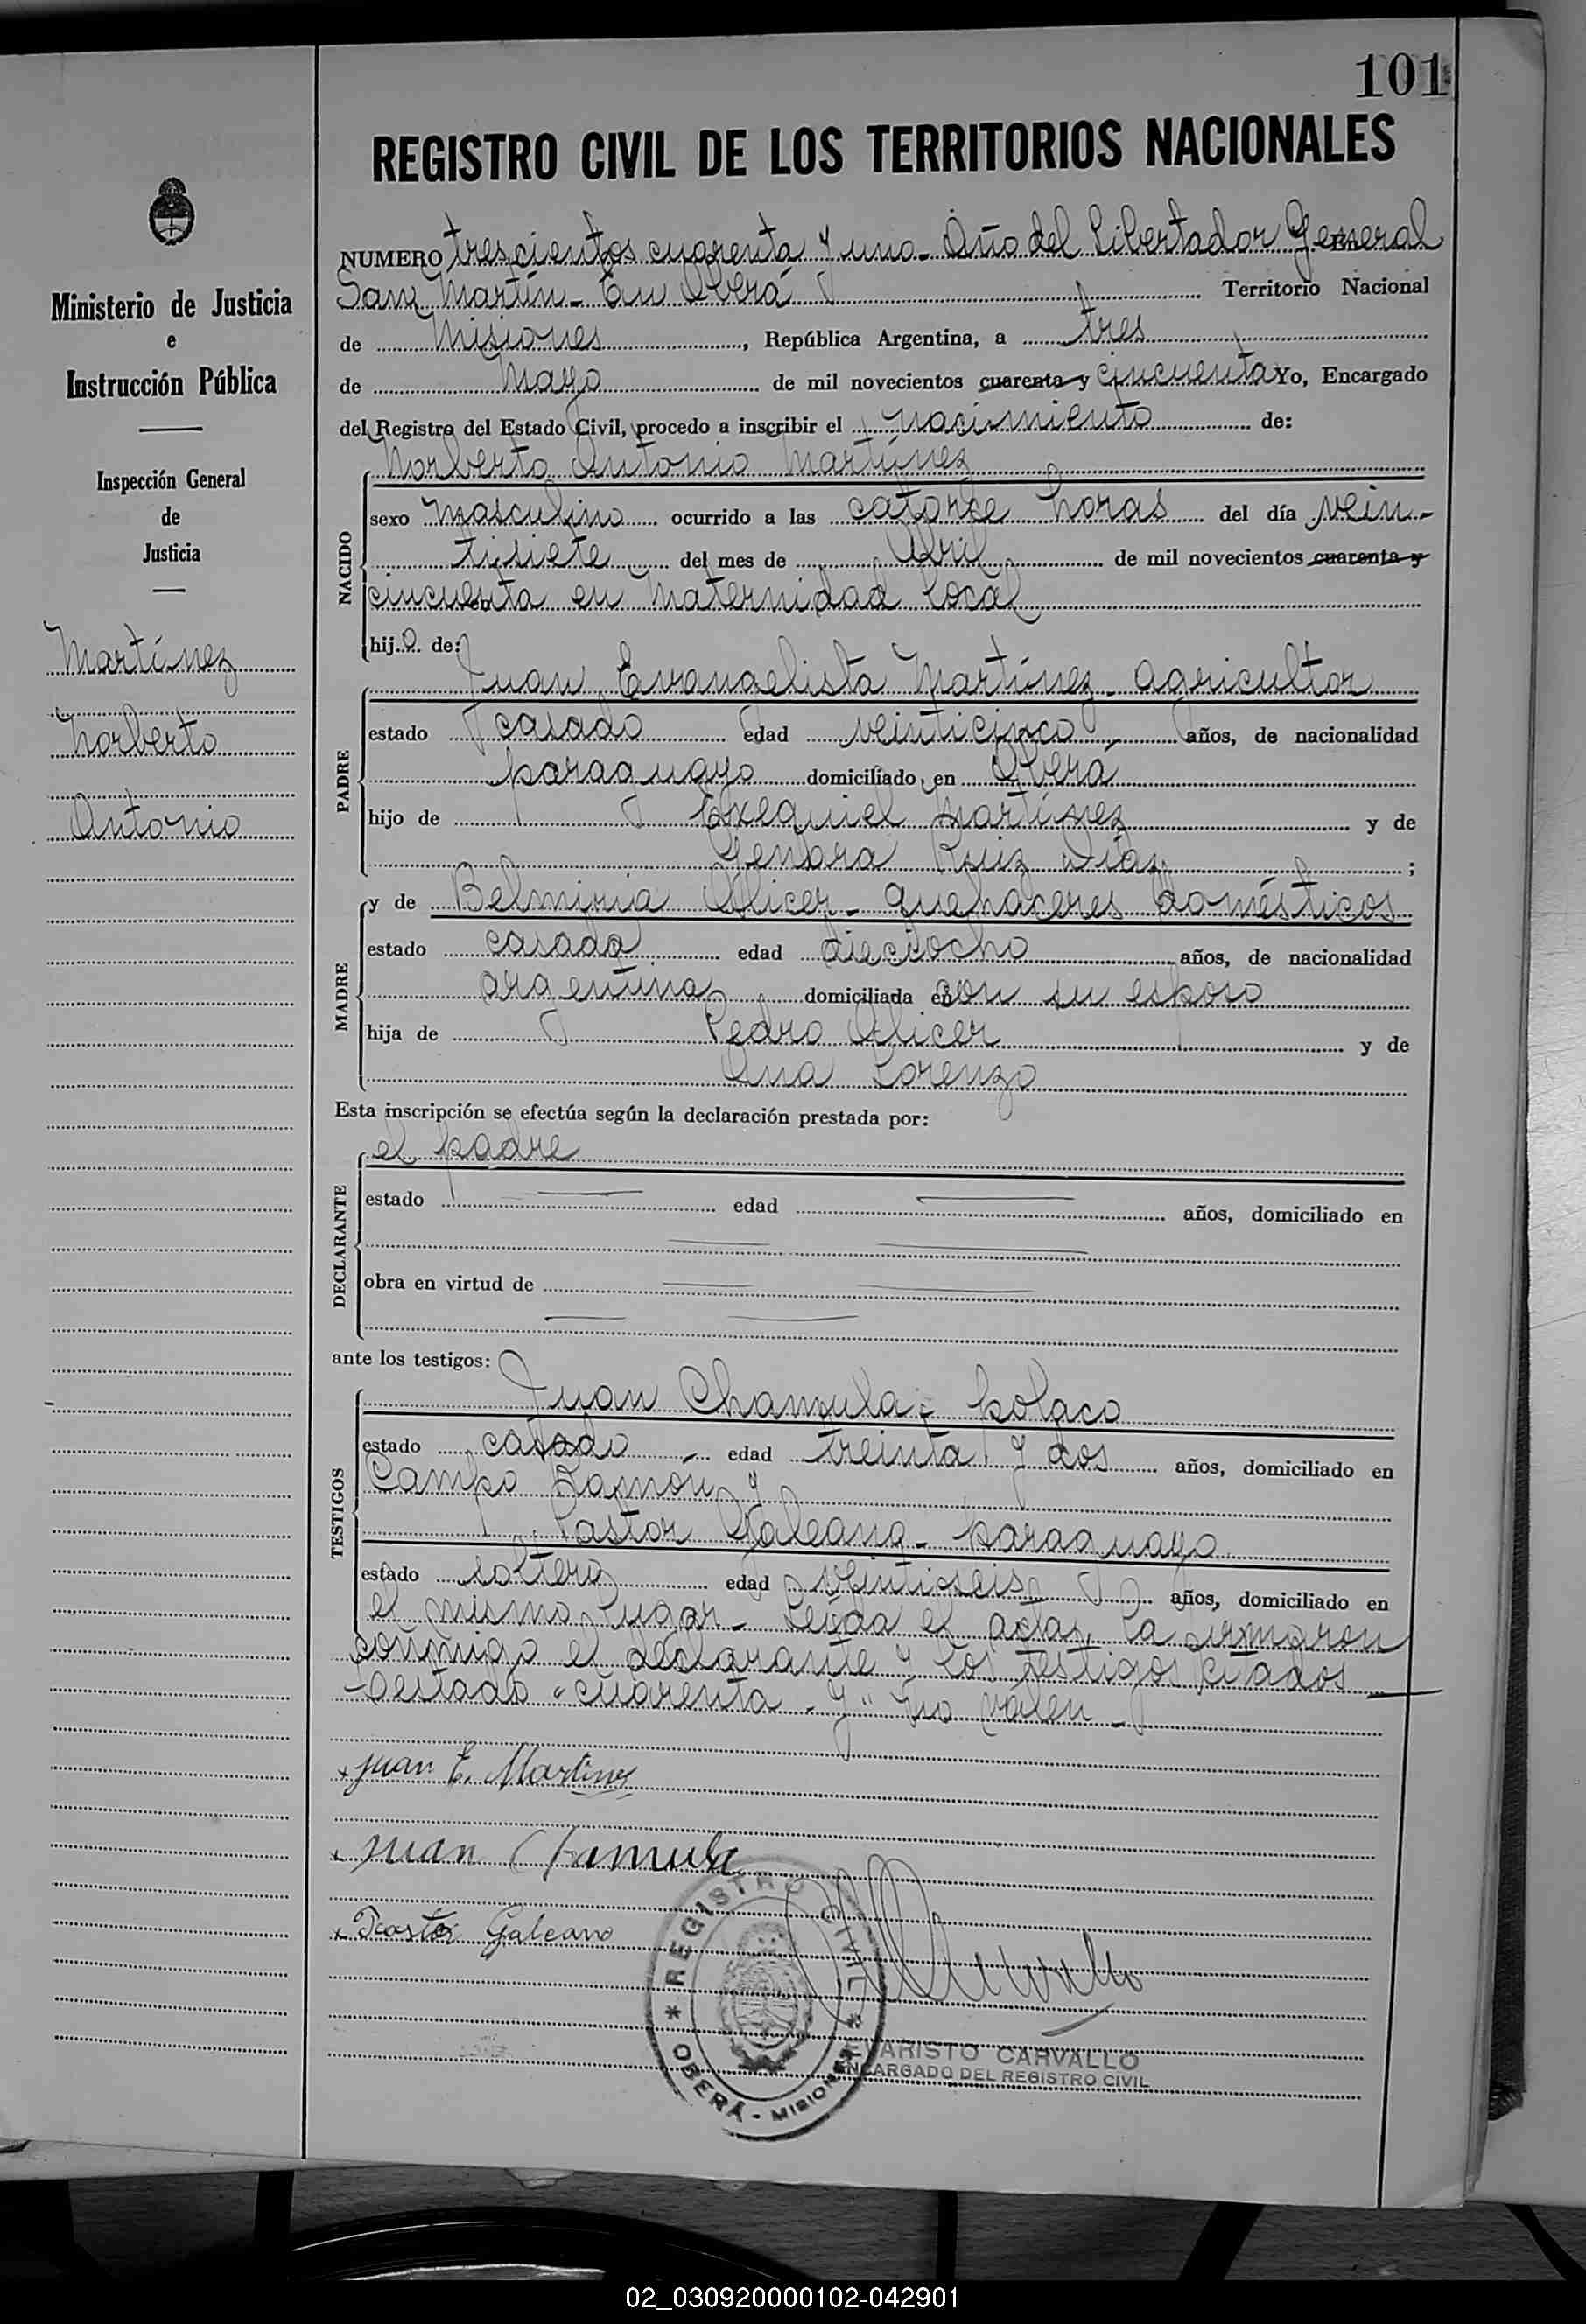 101
REGISTRO CIVIL DE LOS TERRITORIOS NACIONALES
NUMERO trescientos cuarenta y uno - Año del Libertador General
San Martín - En Oberá Territorio Nacional
de Misiones, República Argentina, a tres
de Mayo de mil novecientos cuarenta y cincuenta Yo, Encargado
del Registro del Estado Civil, procedo a inscribir el nacimiento de:
Norberto Antonio Martínez
NACIDO
sexo masculino ocurrido a las catorce horas del día vein-
tisiete del mes de Abril de mil novecientos cuarenta y
cincuenta en Maternidad local
hijo de:
PADRE
Juan Evangelista Martínez - agricultor
estado casado edad veinticinco años, de nacionalidad
paraguayo domiciliado en Oberá
hijo de Exequiel Martínez y de
Genara Ruiz Díaz ;
MADRE
y de Belmiria Olicer - quehaceres domésticos
estado casada edad dieciocho años, de nacionalidad
argentina domiciliada en con su esposo
hija de Pedro Olicer y de
Ana Lorenzo
Esta inscripción se efectúa según la declaración prestada por:
DECLARANTE
el padre
estado edad años, domiciliado en
obra en virtud de
ante los testigos:
TESTIGOS
Juan Chamula - polaco
estado casado edad treinta y dos años, domiciliado en
Campo Ramón y
Pastor Galeano - paraguayo
estado soltero edad veintiseis años, domiciliado en
el mismo lugar - Leída el acta, la firmaron
conmigo el declarante y los testigos citados
Testado "cuarenta - y" no valen -
x Juan E. Martinez
x Juan Chamula
x Pastor Galeano
REGISTRO CIVIL
* OBERÁ - MISIONES *
EVARISTO CARVALLO
ENCARGADO DEL REGISTRO CIVIL
Ministerio de Justicia
e
Instrucción Pública
Inspección General
de
Justicia
Martínez
Norberto
Antonio
02_030920000102-042901